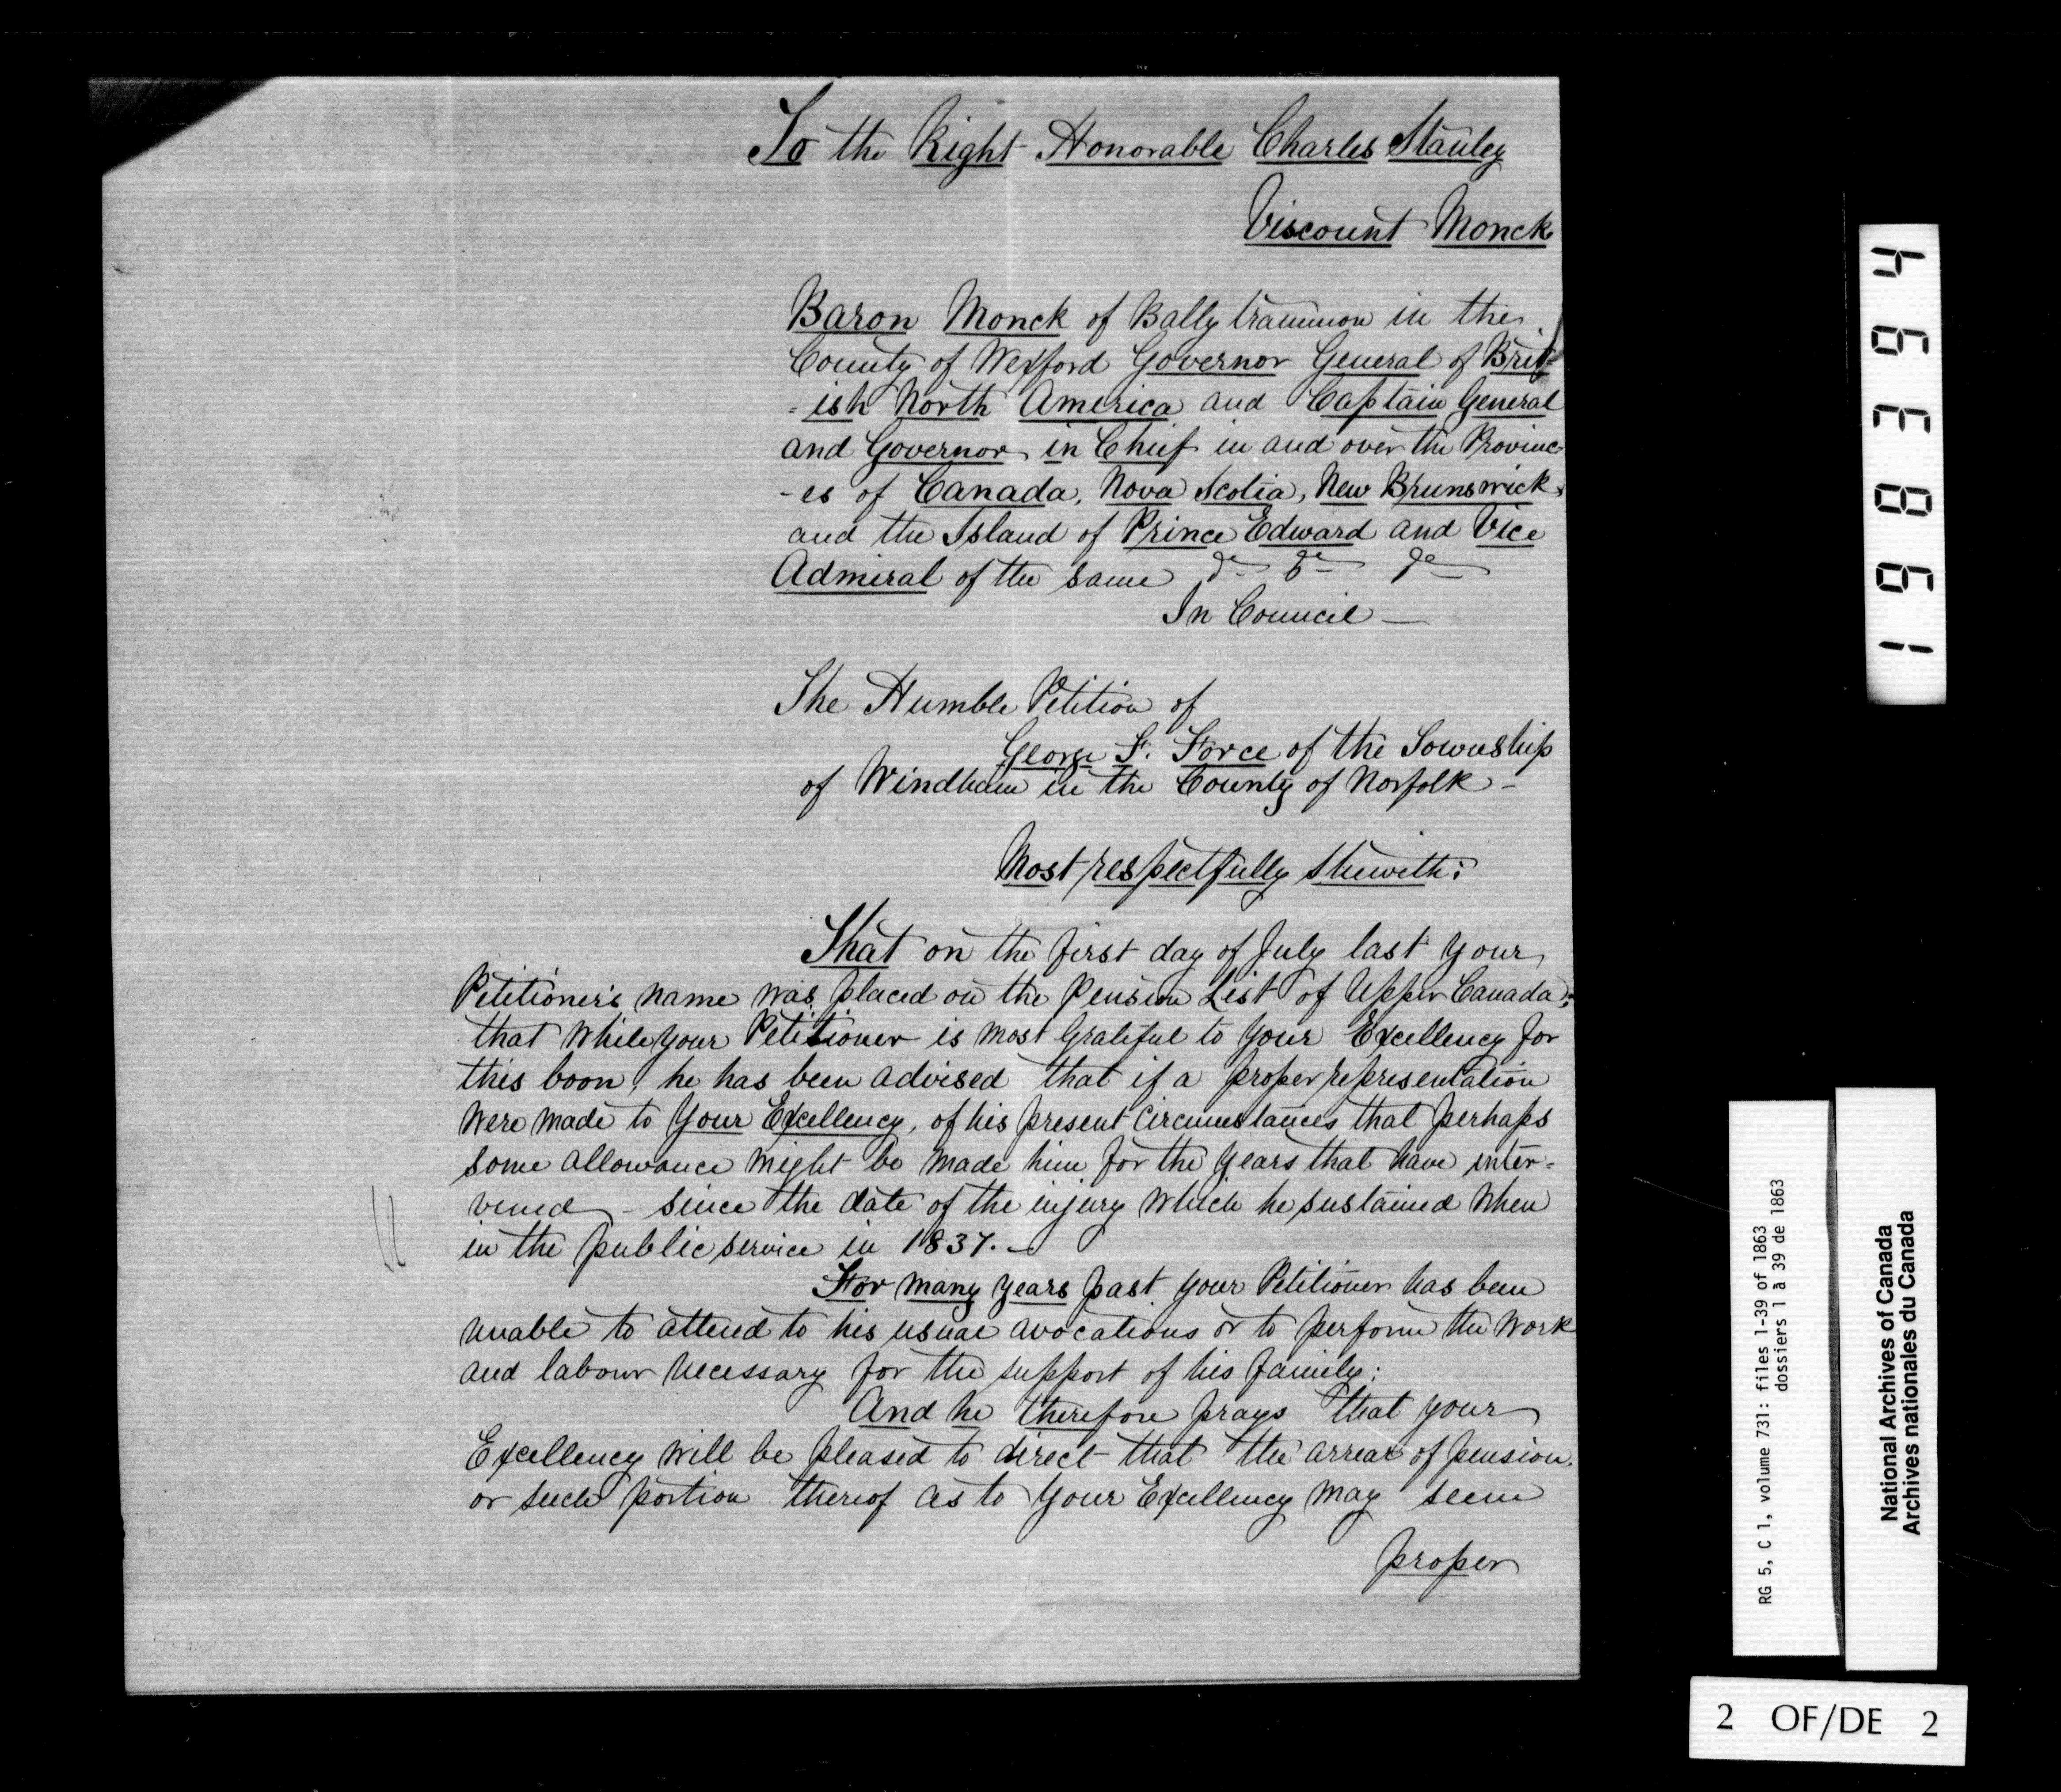 To the Right Honorable Charles Stanley
Viscount Monck
Baron Monck of Ballytrammon in the
County of Wexford Governor General of Brit=
=ish North America and Captain General
and Governor in Chief in and over the Provinc-
-es of Canada, Nova Scotia, New Brunswick,
and the Island of Prince Edward and Vice
Admiral of the same &c &c &c
In Council —
The Humble Petition of
George F. Force of the Township
of Windham in the County of Norfolk –
Most respectfully Sheweth:
That on the first day of July last your
Petitioner's name was placed on the Pension List of Upper Canada;
that while your Petitioner is most grateful to your Excellency for
this boon, he has been advised that if a proper representation
were made to Your Excellency, of his present circumstances that perhaps
some allowance might be made him for the years that have inter=
vened – since the date of the injury which he sustained when
in the public service in 1837. –
For many years past your Petitioner has been
unable to attend to his usual avocations or to perform the work
and labour necessary for the support of his family:
And he therefore prays that your
Excellency will be pleased to direct that the arrear of pension
or such portion thereof as to Your Excellency may seem
proper
198394
RG 5, C 1, volume 731: files 1-39 of 1863
dossiers 1 à 39 de 1863
National Archives of Canada
Archives nationales du Canada
2 OF/DE 2